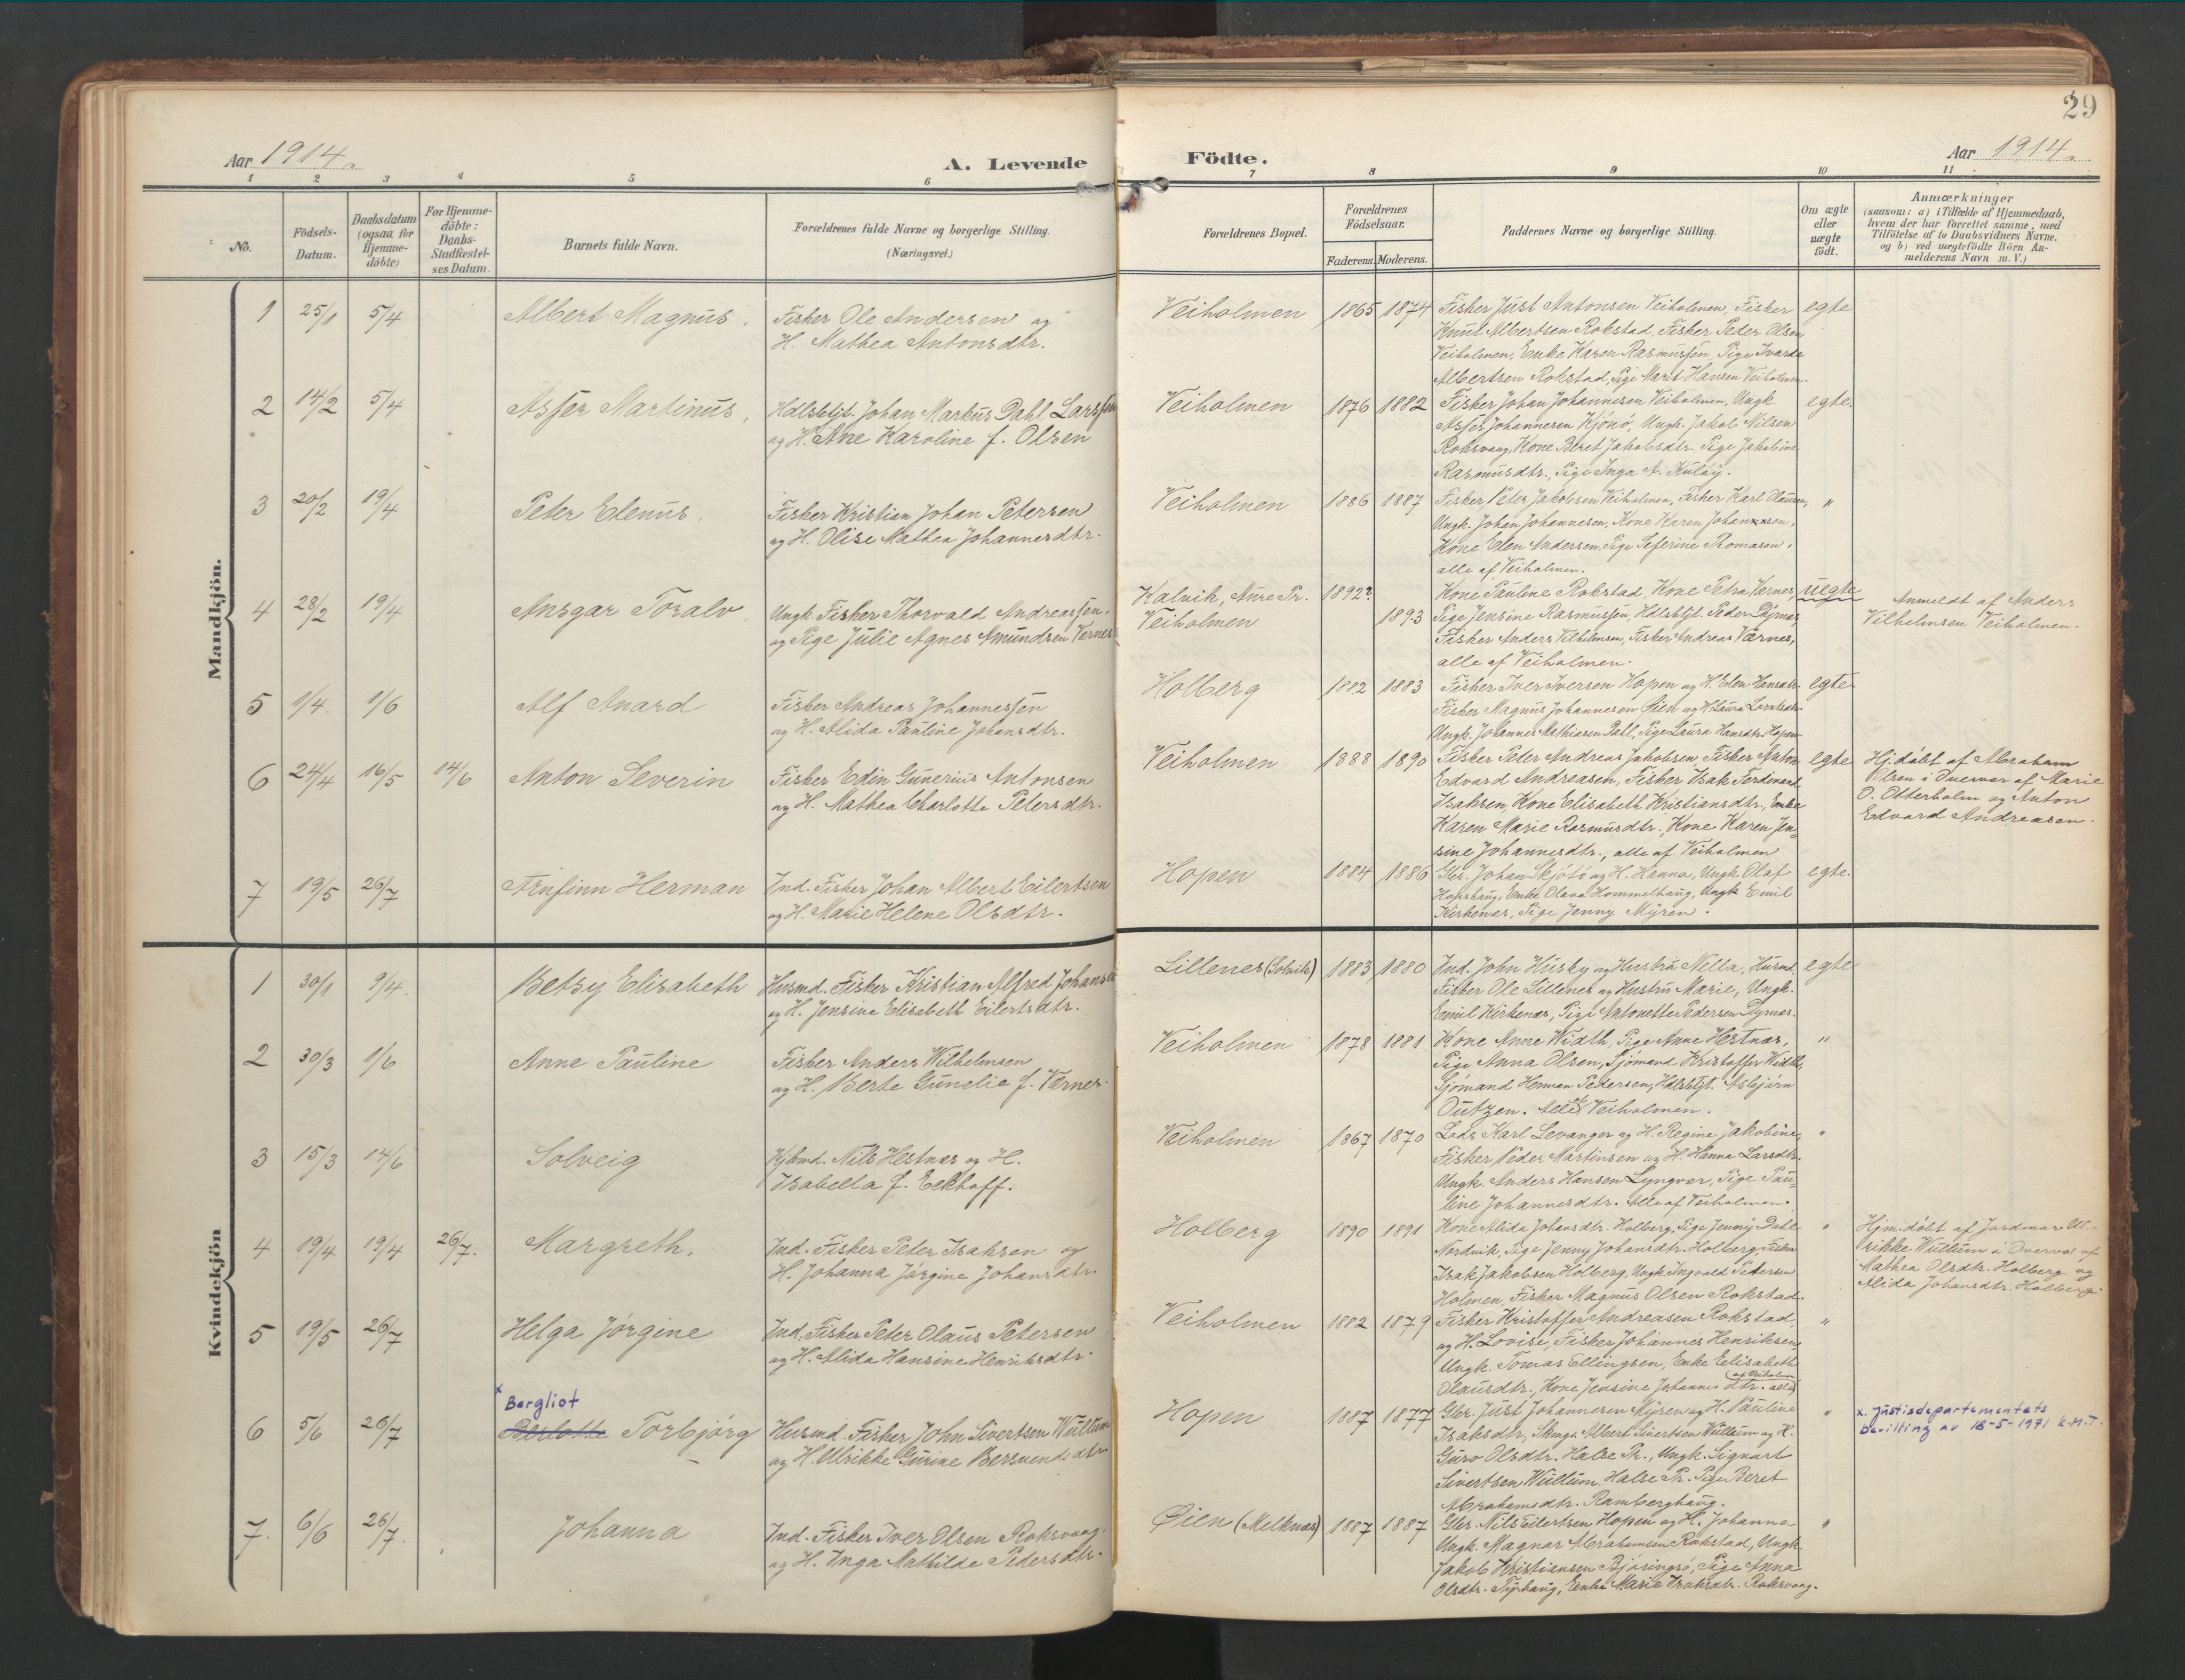 29
Aar 1914.
A. Levende
Födte.
Aar 1914.
1 2 3 4 5 6 7 8 9 10 11
No.
Födsels-Datum.
Daabsdatum (ogsaa for Hjemme-döbte)
For Hjemme-döbte: Daabs-Stadfæstel-ses Datum.
Barnets fulde Navn.
Forældrenes fulde Navne og borgerlige Stilling.
(Næringsvei.)
Forældrenes Bopæl.
Forældrenes Födselsaar.
Faderens. Moderens.
Faddernes Navne og borgerlige Stilling.
Om ægte eller uægte födt.
Anmærkninger
(saasom: a) i Tilfælde af Hjemmedaab,
hvem der har forrettet samme, med
Tilföielse af to Daabsvidners Navne,
og b) ved uægtefödte Börn An-
melderens Navn m. V.)
Mandkjön.
1 25/1 5/4 Albert Magnus. Fisker Ole Andersen og
H. Mathea Antonsdtr.
Veiholmen 1865 1874
Fisker Just Antonsen Veiholmen, Fisker
Knut Albertsen Rokstad, Fisker Peter Olsen
Veiholmen, Enke Karen Rasmussen Pige Ivarda
Albertsen Rokstad, Pige Marit Hansen Veiholmen.
egte
2 14/2 5/4 Asser Martinus. Hdlsbtj. Johan Markus Dahl Larssen
og H. Ane Karoline f. Olsen
Veiholmen 1876 1882
Fisker Johan Johannesen Veiholmen, Ungk.
Asser Johannesen Kjönö, Ungk. Jakob Nilsen
Roksvaag, Kone Beret Jakobsdtr. Pige Jakobine
Rasmusdtr., Pige Inga A. Kulöy.
egte.
3 20/2 19/4 Peter Elenus. Fisker Kristian Johan Petersen
og H. Olise Mathea Johannesdtr.
Veiholmen 1886 1887
Fisker Peter Jakobsen Veiholmen, Fisker Karl Olausen,
Ungk. Johan Johannesen, Kone Karen Johansen,
Kone Elen Andersen, Pige Seferine Tomasen,
alle af Veiholmen.
"
4 28/2 19/4 Ansgar Toralv. Ungk. Fisker Thorvald Andreassen,
og Pige Julie Agnes Amundsen Vernes
Kalvik, Aure Pr. 1892?
Veiholmen 1893
Kone Pauline Rokstad, Kone Petra Værnes
Pige Jensine Rasmussen, Hdlsbtj. Peder Dyrnes,
Fisker Anders Vilhelmsen, Fisker Andreas Værnes,
alle af Veiholmen.
uegte
Anmeldt af Anders
Vilhelmsen Veiholmen.
5 1/4. 1/6 Alf Anard Fisker Andreas Johannessen
og H. Alida Pauline Johansdtr.
Holberg 1882 1883
Fisker Iver Iversen Hopen og H. Elen Hansdtr.
Fisker Magnus Johannesen Øien og H. Laura
Ungk. Johannes Mathiasen Dahl, Pige Laura Hansdtr. Hopen
egte
6 24/4 16/5 14/6 Anton Severin Fisker Edin Gunerius Antonsen
og H. Mathea Charlotte Petersdtr.
Veiholmen 1888 1890
Fisker Peter Andreas Jakobsen Fisker Anton
Edvard Andreasen, Fisker Isak Ferdinand
Isaksen, Kone Elisabeth Kristiansdtr, Enke
Karen Marie Rasmusdtr., Kone Karen Jen-
sine Johannesdtr., alle af Veiholmen
egte
Hj. döbt af Abraham
Olsen i Overvær af Marie
O. Otterholm og Anton
Edvard Andreasen.
7 19/5 26/7 Arnfinn Herman Ind. Fisker Johan Albert Eilertsen
og H. Marie Helene Olsdtr.
Hopen 1884 1886
Gbr. Johan Skjötö og H. Hanna, Ungk. Olaf
Hopshaug, Enke Olava Hommelhaug, Ungk Emil
Kirkenes, Pige Jenny Myren.
egte.
Kvindekjön
1 30/1 9/4. Betsy Elisabeth Husmd. Fisker Kristian Alfred Johansen
og H. Jensine Elisabeth Eilertsdtr.
Lillenes (Solvik) 1883 1880
Ind. John Husby og Hustru Nella, Husmd.
Fisker Ole Lillenes og Hustru Marie, Ungk.
Emil Kirkenes, Pige Antonette Pedersen Dyrnes.
egte
2 30/3 1/6 Anne Pauline Fisker Anders Wilhelmsen
og H. Berte Gunelie f. Vernes.
Veiholmen 1878 1881
Kone Anne Width, Pige Anne Hestnes,
Pige Anna Olsen, Sjömand Kristoffer Width,
Sjömand Herman Pedersen, Hdlsbtj. Asbjörn
Outzen. Alle af Veiholmen.
"
3 15/3 14/6 Solveig Kjbmd. Nils Hestnes og H.
Isabella f. Eckhoff.
Veiholmen 1867 1870
Lods Karl Levanger og H. Regine Jakobine,
Fisker Peder Martinsen og H. Hanna Larsdtr.
Ungk. Anders Hansen Lyngvær, Pige Pau-
line Johannesdtr. Alle af Veiholmen.
"
4 19/4 19/4 26/7. Margreth. Ind. Fisker Peter Isaksen og
H. Johanna Jörgine Johansdtr.
Holberg 1890 1891
Kone Alida Johansdtr. Holberg, Pige Jenny Dahl
Nordvik, Pige Jenny Johansdtr. Holberg, Fisker
Isak Jakobsen Holberg, Ungk. Ingvald Petersen
Holmen, Fisker Magnus Olsen Rokstad.
"
Hjm. döbt af Jordmor Ul-
rikke Wullum i Overvær af
Mathea Olsdtr. Holberg og
Alida Johansdtr. Holberg.
5 19/5 26/7 Helga Jörgine Ind. Fisker Peter Olaus Petersen
og H. Alida Hansine Henriksdtr.
Veiholmen 1882 1879
Fisker Kristoffer Andreasen Rokstad,
og H. Lovise, Fisker Johannes Henriksen,
Ungk. Tomas Ellingsen, Enke Elisabeth
Olausdtr., Kone Jensine Johannesdtr. alle
af Veiholmen
"
x
Bergliot
6 5/6 26/7 Torbjörg Husmd. Fisker John Sivertsen Wullum
og H. Ulrikke Gurine Bersvendsdtr
Hopen 1887 1877
Gbr. Just Johannesen Myren og H. Pauline
Isaksdtr, Albert Sivertsen Wullum og H.
Guro Olsdtr. Halse Pr., Ungk. Sigvart
Sivertsen Wullum Halse Pr. Pige Beret
Abrahamsdtr. Ramberghaug.
"
x. Justisdepartementets
bevilling av 18-5-1971 K.M.T.
7. 6/6 26/7. Johanna Ind. Fisker Iver Olsen Roksvaag
og H. Inga Mathilde Pedersdtr.
Øien (Melknes) 1887 1887
Gbr. Nils Eilertsen Hopen og H. Johanna
Ungk. Magnar Abrahamsen Rokstad, Ungk.
Jakob Kristiansen Bjösingsö, Pige Anna
Olsdtr. Enke Marie Isaksdtr. Roksvaag.
"